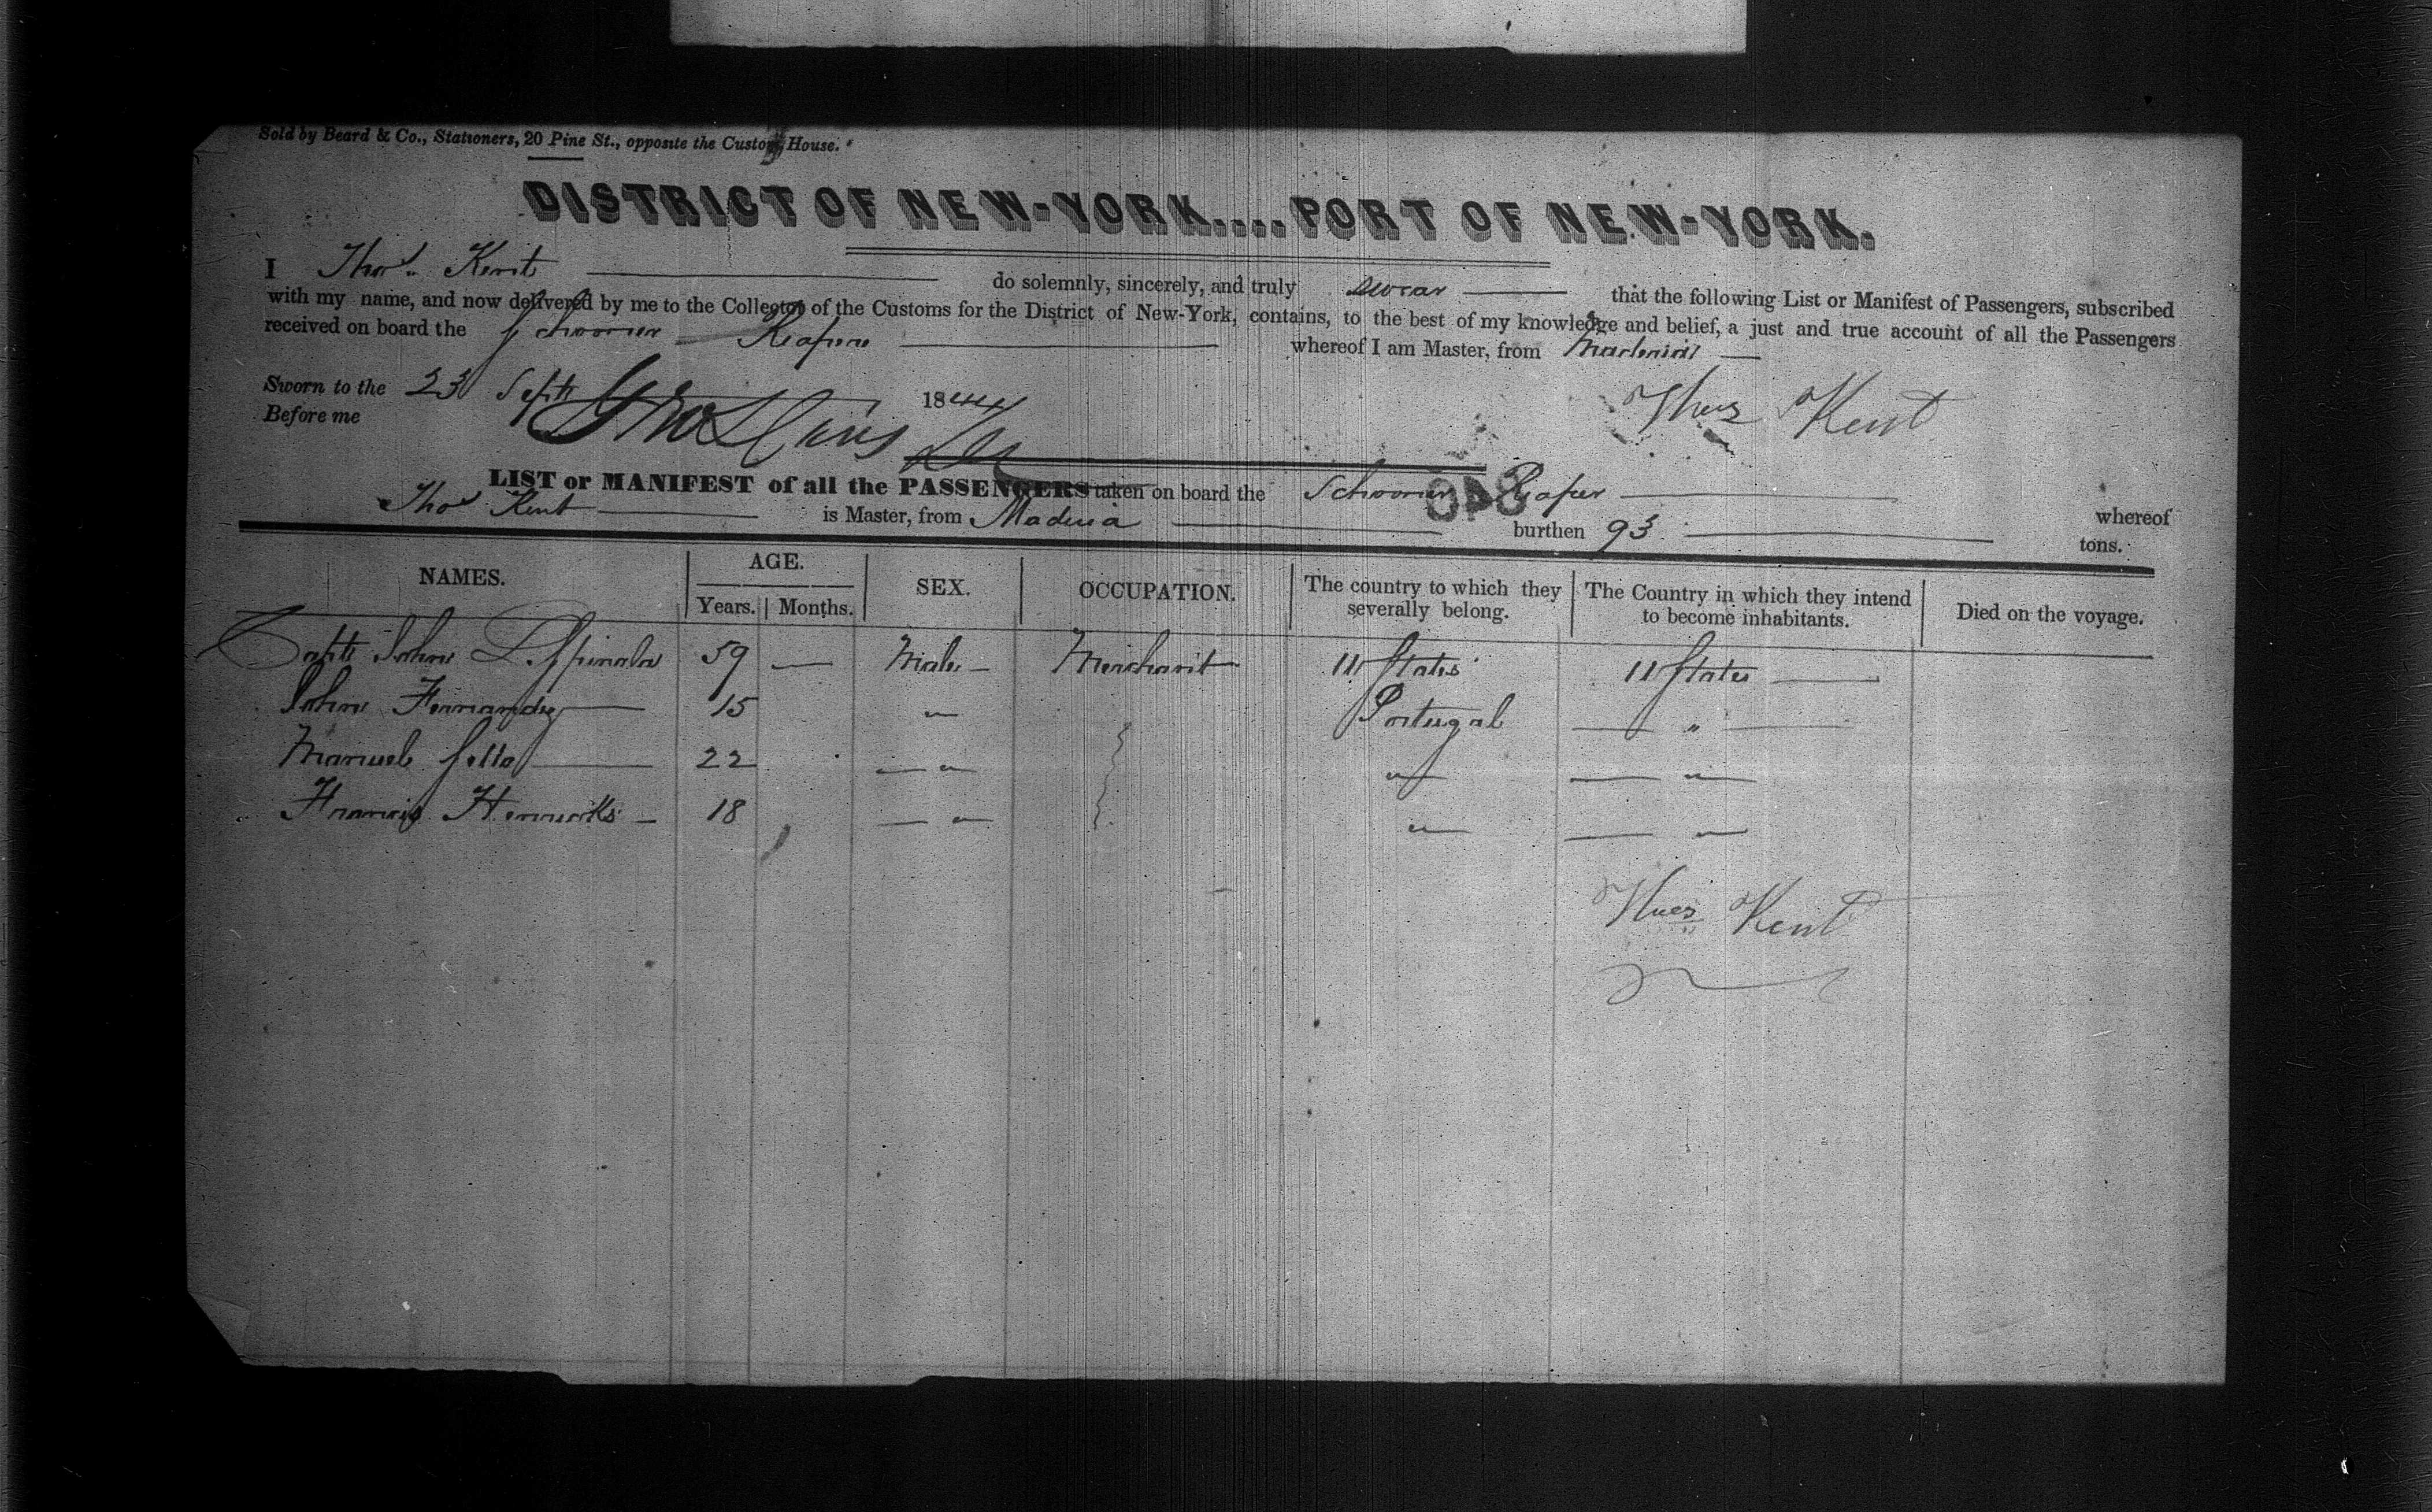 Sold by Beard & Co., Stationers, 20 Pine St., opposite the Custom House.
DISTRICT OF NEW-YORK....PORT OF NEW-YORK.
I Thos. Kent do solemnly, sincerely, and truly swear that the following List or Manifest of Passengers, subscribed
with my name, and now delivered by me to the Collector of the Customs for the District of New-York, contains, to the best of my knowledge and belief, a just and true account of all the Passengers
received on board the Schooner Reaper whereof I am Master, from Madeira
Sworn to the 23 Sept 1844 Thos Kent
Before me
LIST or MANIFEST of all the PASSENGERS taken on board the Schooner Reaper whereof
Thos Kent is Master, from Madeira burthen 93 tons.
848
NAMES. AGE. SEX. OCCUPATION. The country to which they severally belong. The Country in which they intend to become inhabitants. Died on the voyage.
Years. Months.
Capt John 59 — Male — Merchant U States U States
John Fernandez 15 " Portugal "
Manuel 22 " " "
Francis 18 " " "
Thos Kent